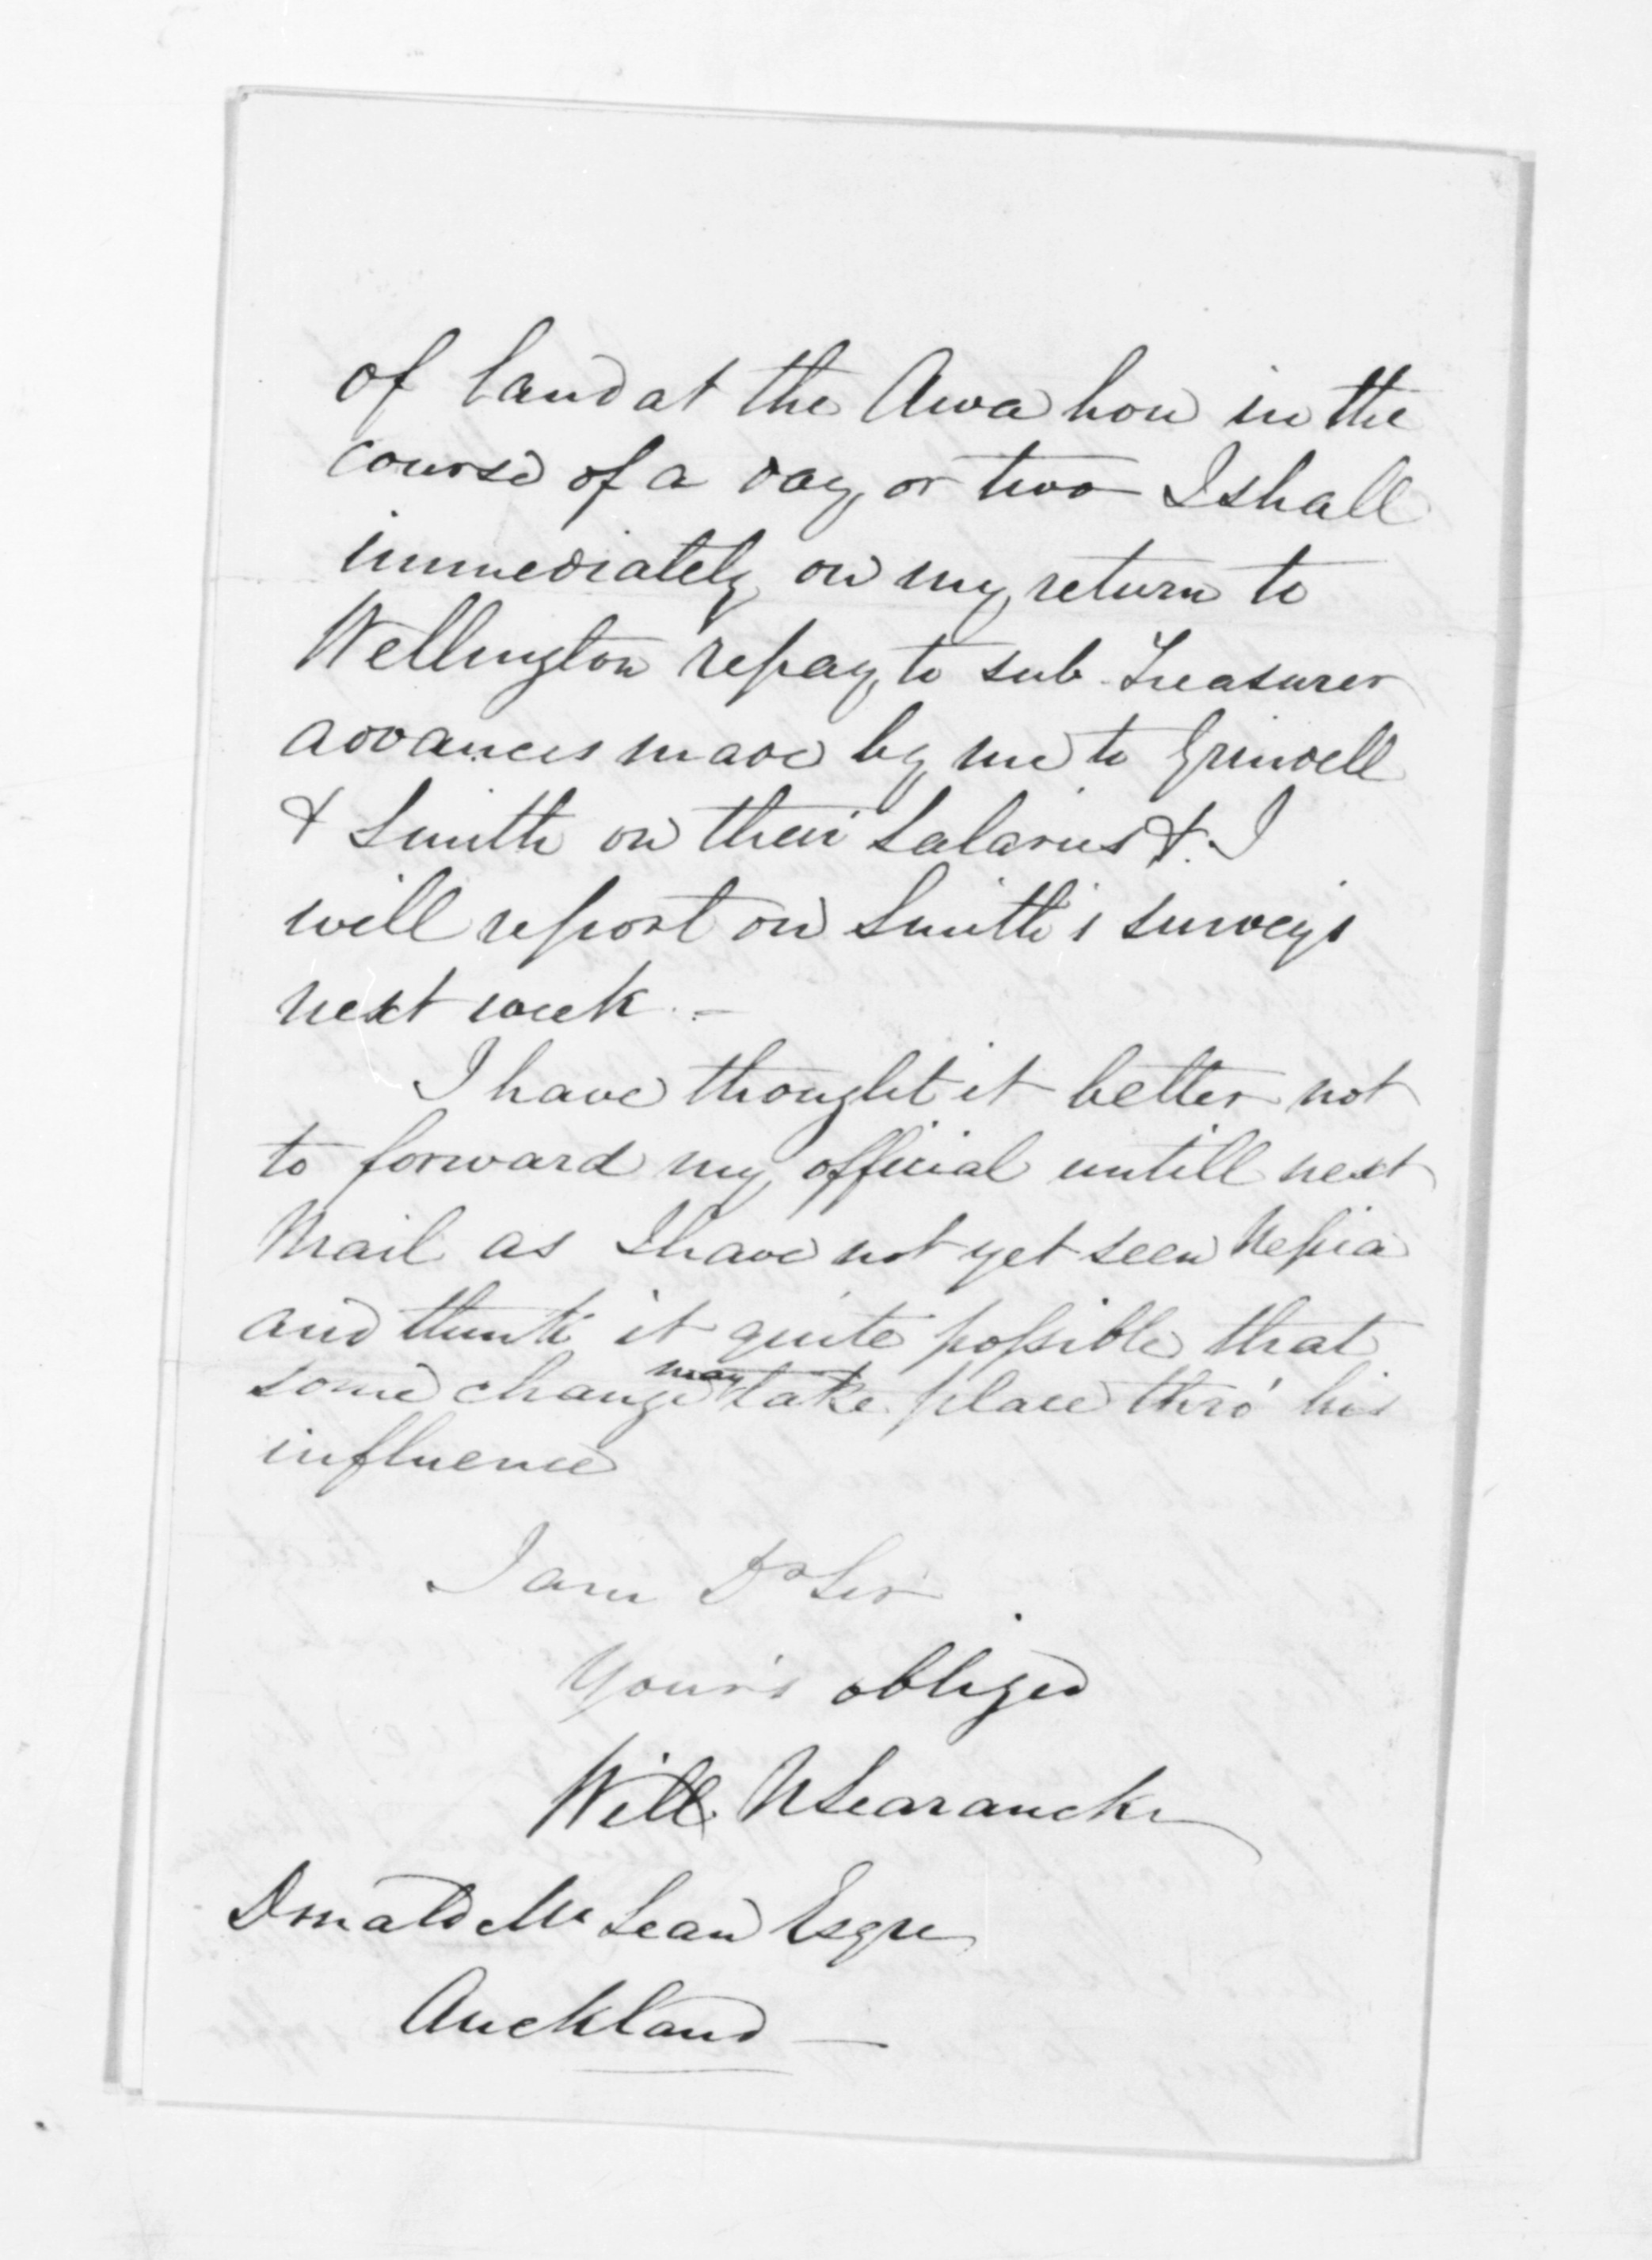 of land at the Awa hou in the
course of a day or two I shall
immediately on my return to
Wellington repay to sub. Treasurer
advances made by me to Grindell
& Smith on their Salaries &. I
will report on Smith's surveys
next week. -
I have thought it better not
to forward my official untill next
Mail as I have not yet seen Nepia
and think it quite possible that
some change may take place thro' his
influence
I am Dr Sir
Your's obliged
Will. N Searancke
Donald Mc Lean Esqre
Auckland —